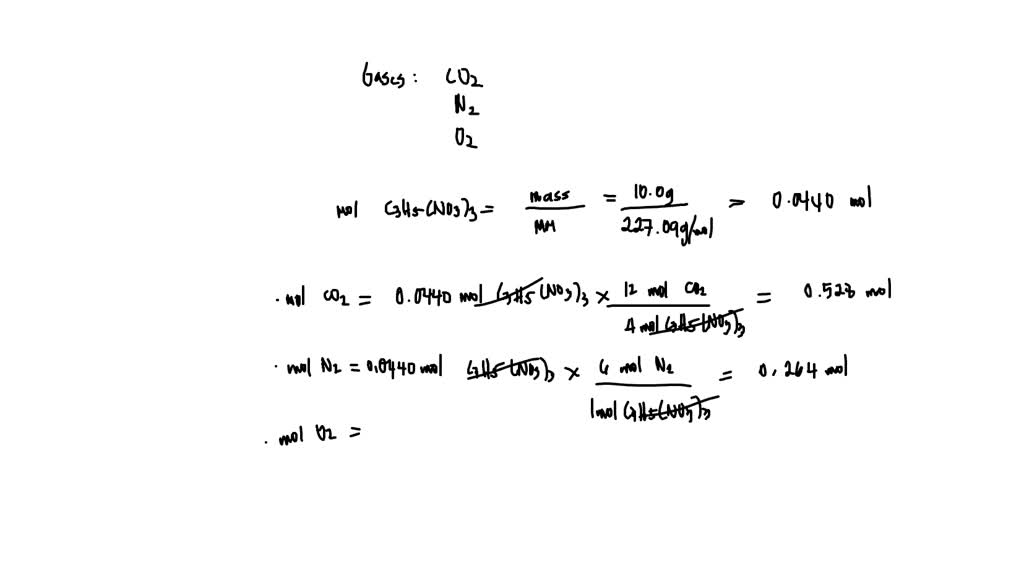 Gases: CO2
N2
O2
mol C3H5(NO3)3 = mass / MM = 10.0g / 227.09g/mol = 0.0440 mol
· mol CO2 = 0.0440 mol C3H5(NO3)3 × 12 mol CO2 / 4 mol C3H5(NO3)3 = 0.528 mol
· mol N2 = 0.0440 mol C3H5(NO3)3 × 6 mol N2 / 1 mol C3H5(NO3)3 = 0.264 mol
· mol O2 =